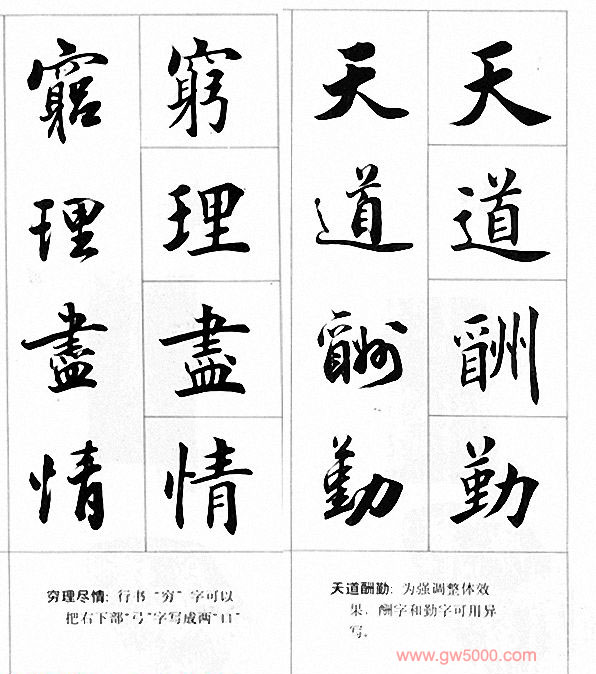 天道酬勤
天道酬勤
天道酬勤:为强调整体效
果,酬字和勤字可用异
写。
窮理盡情
竆理盡情
穷理尽情:行书“穷”字可以
把右下部“弓”字写成两“口”
www.gw5000.com